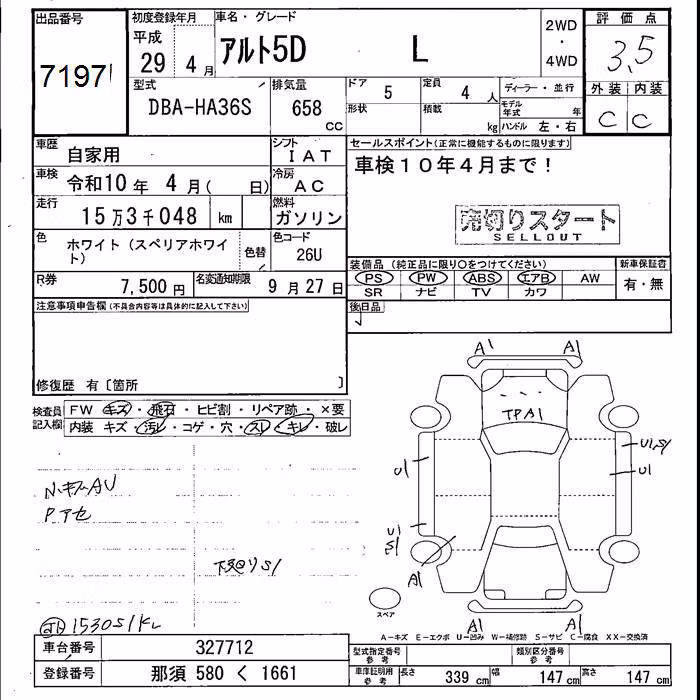 出品番号
71971
初度登録年月
平成
29 4月
車名・グレード
アルト5D L
2WD
・
4WD
評価点
3,5
外装 内装
C C
型式
DBA-HA36S
排気量
658
cc
ドア
5
定員
4 人
形状
積載
kg
ディーラー・並行
モデル年式 年
ハンドル 左・右
車歴
自家用
シフト
IAT
車検
令和10年 4月( 日)
冷房
AC
走行
15万3千048 km
燃料
ガソリン
色
ホワイト(スペリアホワイト)
色替
色コード
26U
R券
7,500円
名変通知期限
9月27日
セールスポイント(正常に機能するものに限ります)
車検10年4月まで!
売切りスタート
SELLOUT
装備品(純正品に限り○をつけてください)
新車保証書
PS PW ABS エアB AW
SR ナビ TV カワ
有・無
後日品
注意事項申告欄(不具合内容等は具体的に記入して下さい)
修復歴 有〔箇所 〕
検査員記入欄
FW キズ・飛石・ヒビ割・リペア跡・×要
内装 キズ・汚レ・コゲ・穴・スレ・キレ・破レ
A1 A1
TPA1
U1,S1
U1 U1
U1
S1
A1
Pアセ
下廻りS1
153051KL
スペア
A1 A1
A-キズ E-エクボ U-凹み W-補修跡 S-サビ C-腐食 XX-交換済
車台番号
327712
登録番号
那須 580 く 1661
型式指定番号
参考
類別区分番号
参考
車庫証明用
参考
長さ 339cm 幅 147cm 高さ 147cm